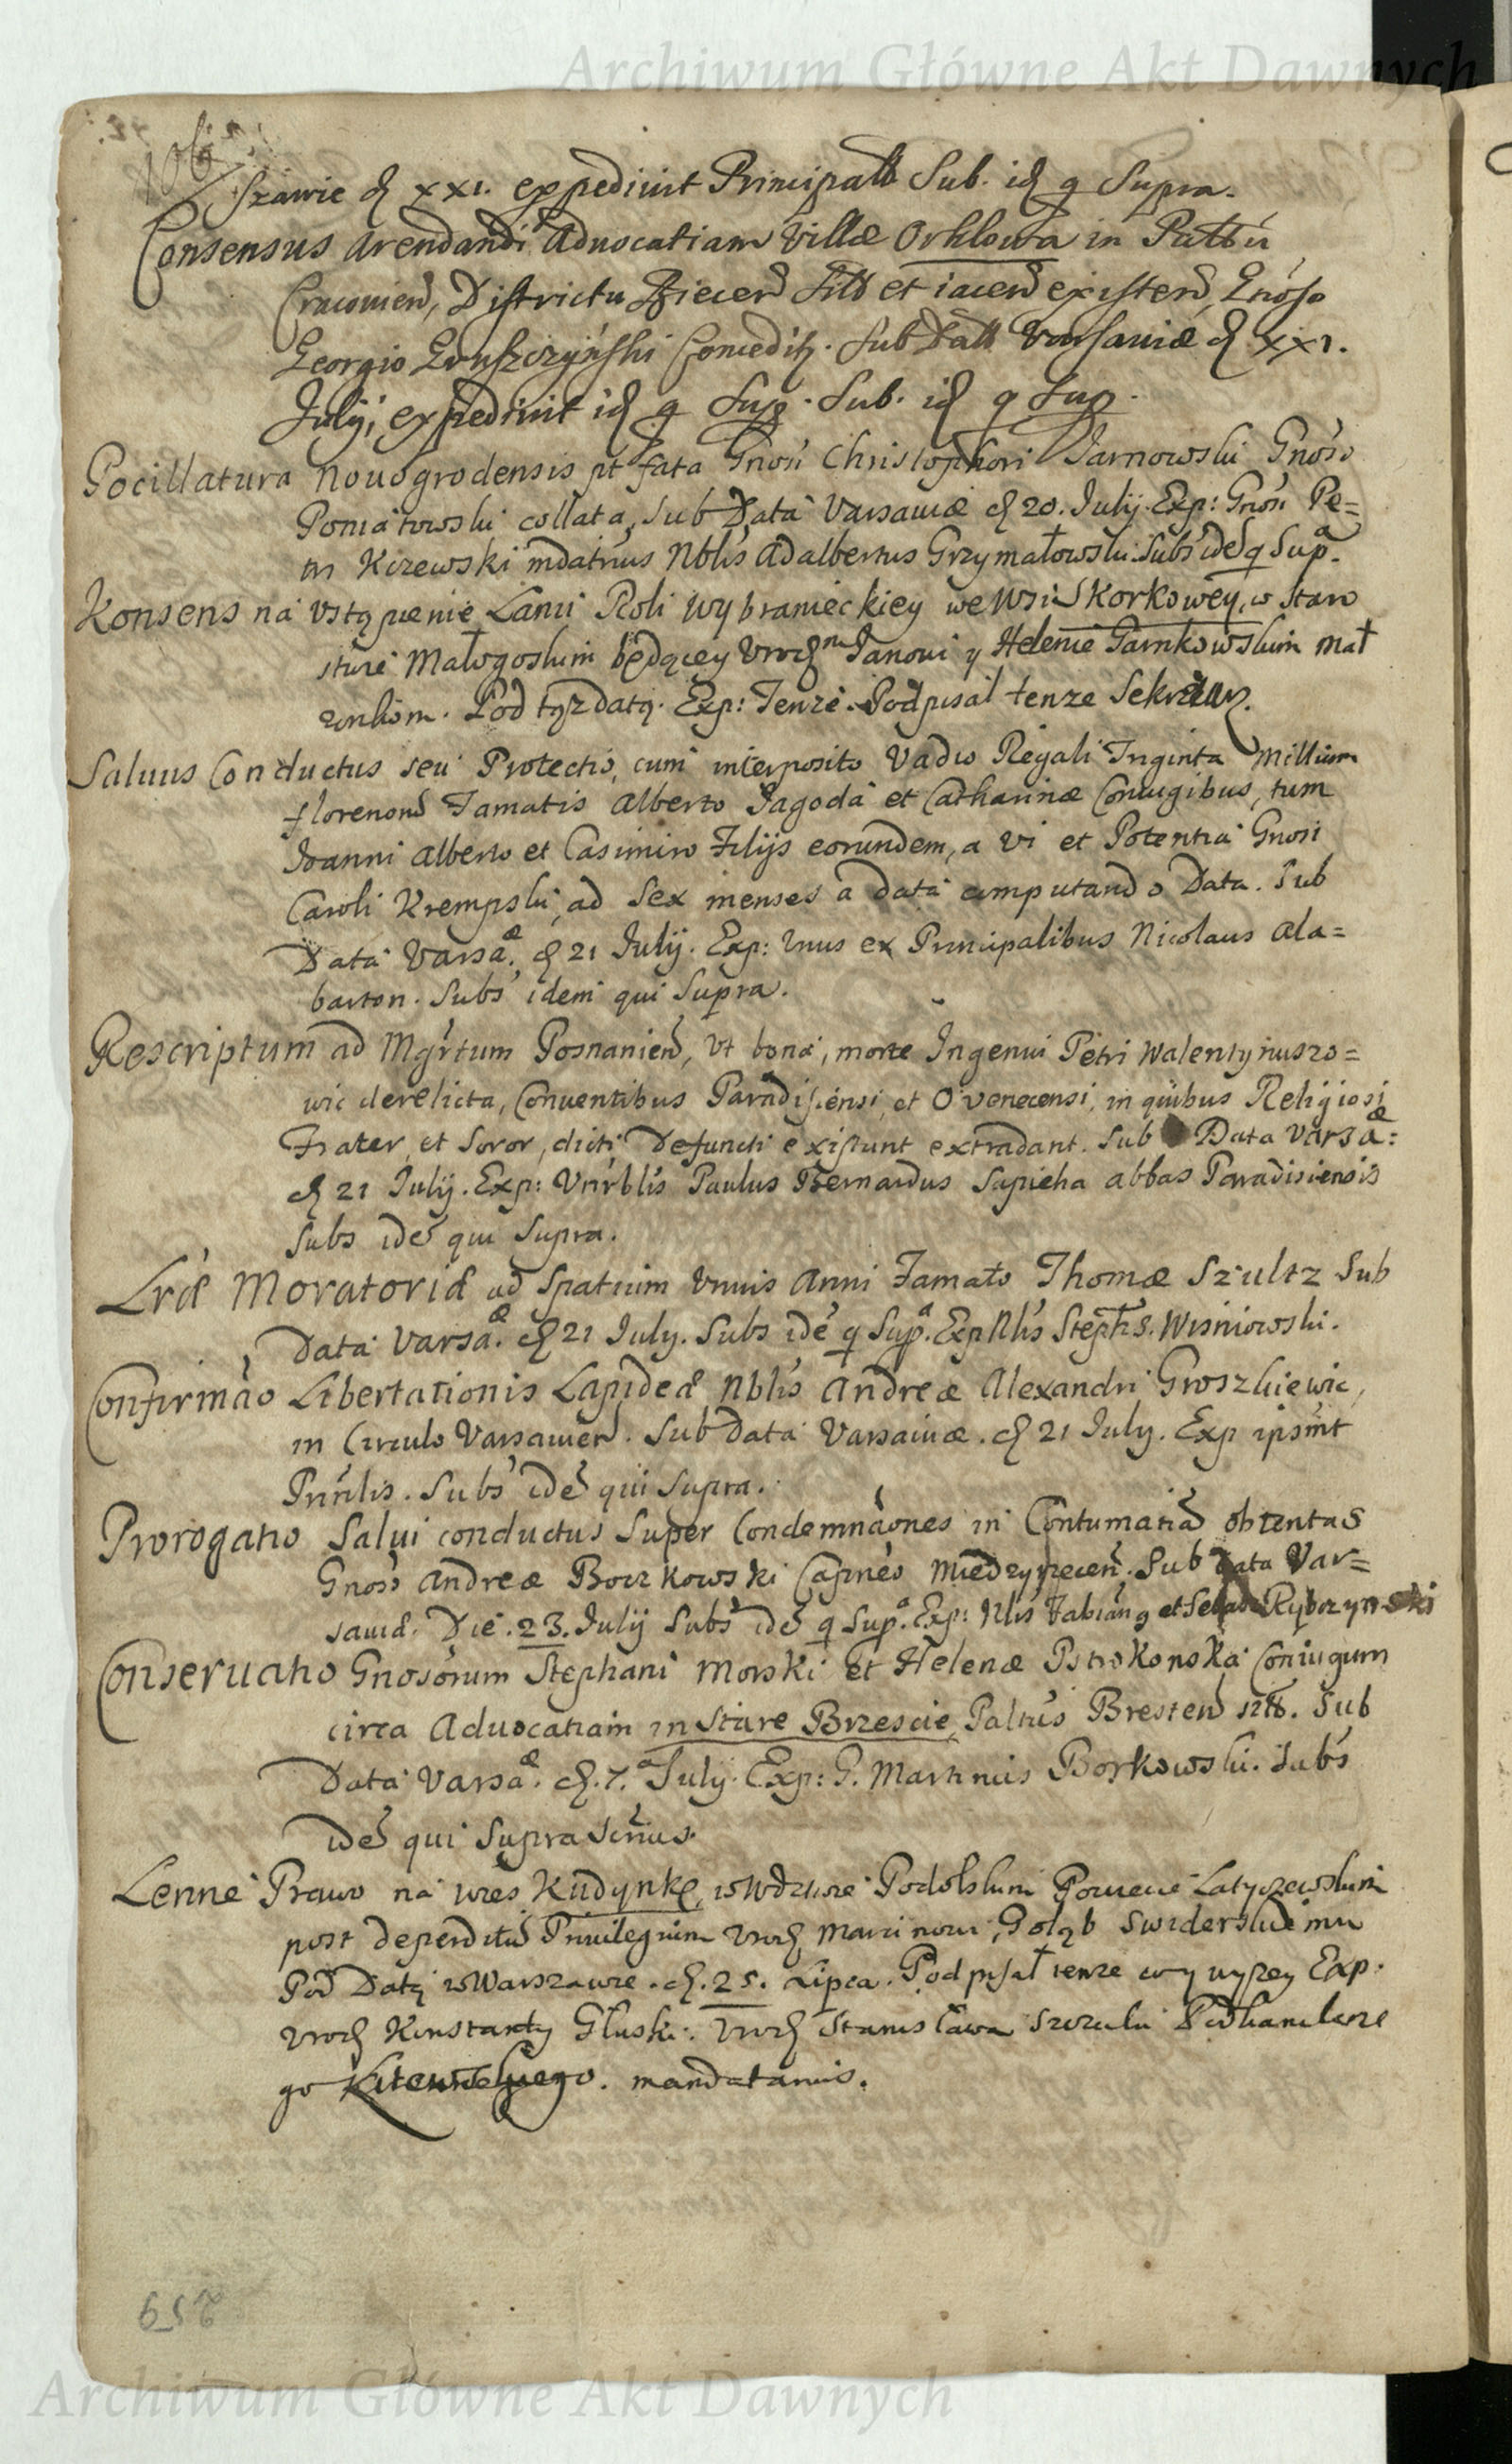 Archiwum Główne Akt Dawnych
106
szawie d xxi. expedivit Principalis Sub. id q Supra.
Consensus arendandi Advocatiam Villæ Orklowa in Pattu
Cracovien, Districtu Biecen Sitt et iacen existen, Gnoso
Georgio Gruszczyński Concedit. Sub Datt Varsaviæ d XXI.
Julij, expedivit id q Sup. Sub. id q Sup.
Pocillatura Nouogrodensis pt fata Gnosi Christophori Jarnowski Gnoso
Poniatowski collata, sub Data Varsaviæ d 20. Julij. Exp: Gnosi Pe=
tri Kizewski mdatrius Nblis Adalbertus Grzymałowski. Subs ide q Supa.
Konsens na vstąpienie Łanu Roli wybranieckiey we wsi Skorkowey, w Staro
stwie Małogoskim będącey Vrodm Janowi y Helenie Garnkowskim mał
zonkom. Pod tąz datą. Exp: Tenze. Podpisał tenze Sekretarz.
Saluus Conductus seu Protectio, cum interposito Vadio Regali Triginta Millium
florenorum Famatis Alberto Jagoda et Catharinæ Coniugibus, tum
Joanni Alberto et Casimiro Filijs eorundem, a vi et Potentia Gnosi
Caroli Krempski, ad sex menses a data computando Data. Sub
Data Varsaæ. d 21 Julij. Exp: Vnus ex Principalibus Nicolaus Ala=
barton. Subs idem qui Supra.
Rescriptum ad Mgrtum Posnanien, Vt bona, morte Ingenui Petri Walentynuszo=
wic derelicta, Conuentibus Paradisiensi, et Ovenecensi, in quibus Religiosi
Frater, et Soror, dicti Defuncti existunt extradant. Sub Data Varsaæ:
d 21 Julij. Exp: Vnrblis Paulus Bernardus Sapieha abbas Paradisiensis
Subs ide qui Supra.
Lræ Moratoriæ ad Spatium Vnius Anni Famato Thomæ Szultz Sub
Data Varsaæ. d 21 July. Subs ide q Supa. Exp Nlis Stephs. Wisniowski.
Confirmao Libertationis Lapideæ Nblis Andreæ Alexandri Groszkiewic,
in Circulo Varsavien. Sub Data Varsaviæ. d 21 July. Exp ipsmt
Prinlis. Subs ide qui Supra.
Prorogatio Salui conductus Super Condemnaones in Contumatia obtentas
Gnoso Andreæ Borzkowski Capneo Miedzyrzecen. Sub Data Var=
saviæ. Die. 23. Julij Subs ide q Supa. Exp: Nlis Fabian9 et Rybczynski
Conseruatio Gnosorum Stephani Morski et Helenæ Pstrokonska Coniugum
circa Aduocatiam in Stare Brzescie, Paltus Bresten sitt. Sub
Data Varsaæ. d. 7.a July. Exp: G. Martinus Borkowski. Subs
ide qui Supra Scrius.
Lenne Prawo na wies Kudynkę, w Wdztwie Podolskim Powiecie Latyczewskim
post deperditu Priuilegium Vrod Marcinowi, Gołąb Swiderskiemu
Pod Datą w Warszawie. d. 25. Lipca. Podpisał tenze co y wyzey Exp.
Vrod Konstanty Gluski. Vrod Stanisława Szczuki Podkanclerze
go mandatarius.
652
Archiwum Główne Akt Dawnych